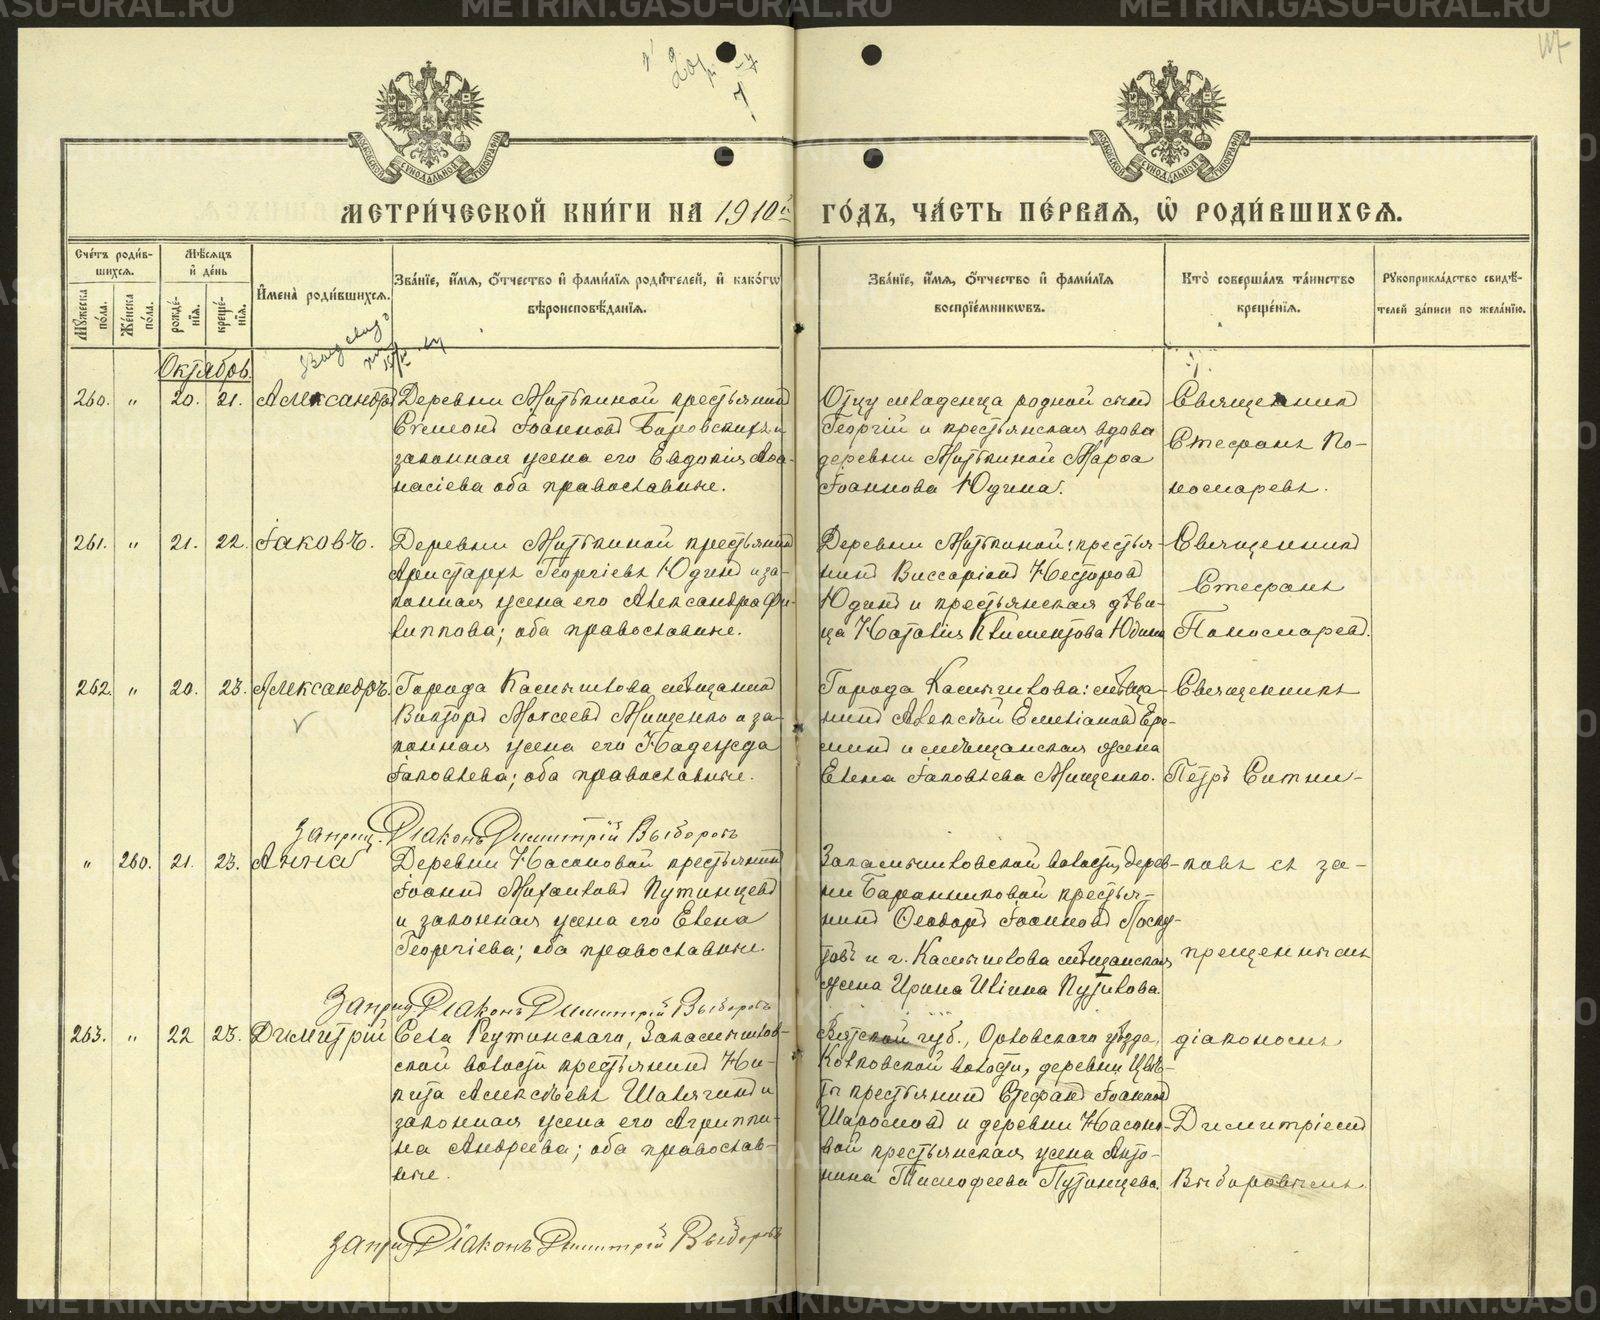 METRIKI.GASU-URAL.RU
МЕТРИ́ЧЕСКОЙ КНИ́ГИ НА 1910й ГО́ДЪ, ЧА́СТЬ ПЕ́РВАЯ, Ѡ РОДИ́ВШИХСЯ.
Сче́тъ роди́в-
шихся.
Мѣ́сяцъ
и́ де́нь
Мꙋ́жеска по́ла.
Же́нска по́ла.
рожде́-нїя.
креще́-нїя.
И҆мена̀ роди́вшихся.
Зва́нїе, и҆́мѧ, ѻ҆́тчество и҆ фами́лїѧ роди́телей, и҆ како́гѡ
вѣроисповѣ́данїѧ.
Зва́нїе, и҆́мѧ, ѻ҆́тчество и҆ фами́лїѧ
воспрїе́мникѡвъ.
Кто̀ соверша́лъ та́инство
креще́нїѧ.
Рꙋкоприкла́дство свидѣ́-
телей за́писи по жела́нїю.
Октябрь.
260. " 20. 21. Александръ
Деревни Митькиной крестьянинъ
Симеонъ Іоанновъ Боровскихъ и
законная жена его Евдокія Аѳа-
насіева оба православные.
Отцу младенца родной сынъ
Георгій и крестьянская вдова
деревни Митькиной Марѳа
Іоаннова Юдина.
Священникъ
Стефанъ По-
номаревъ.
261. " 21. 22. Іаковъ.
Деревни Митькиной крестьянинъ
Аристархъ Георгіевъ Юдинъ и за-
конная жена его Александра Фи-
липпова; оба православные.
Деревни Митькиной: крестья-
нинъ Виссаріонъ Несторовъ
Юдинъ и крестьянская дѣви-
ца Наталія Климентова Юдина
Священникъ
Стефанъ
Пономаревъ.
262. " 20. 23. Александръ.
Города Камышлова мѣщанинъ
Викторъ Моѵсеевъ Мищенко и за-
конная жена его Надежда
Іаковлева; оба православные.
Города Камышлова: мѣща-
нинъ Алексѣй Емеліановъ Ере-
минъ и мѣщанская жена
Елена Іаковлева Мищенко.
Священникъ
Петръ Ситни-
Запрещ. Діаконъ Димитрій Выборовъ
" 260. 21. 23. Анна
Деревни Насоновой крестьянинъ
Іоаннъ Михаиловъ Путинцевъ
и законная жена его Елена
Георгіева; оба православные.
Закамышловской волости, дерев-
ни Баранниковой крестья-
нинъ Ѳеодоръ Іоанновъ
и г. Камышлова мѣщанская
жена Ирина Ильина Путилова.
ковъ съ за-
прещеннымъ
Запрещ Діаконъ Димитрій Выборовъ
263. " 22 23. Димитрій
Села Реутинскаго, Закамышлов-
ской волости крестьянинъ Ни-
кита Алексѣевъ Шалягинъ и
законная жена его Агриппи-
на Андреева; оба православ-
ные.
Вятской губ., Орловскаго уѣзда,
волости, деревни
крестьянинъ Стефанъ Іоанновъ
и деревни Насоно-
вой крестьянская жена Анто-
нина Тимофеева Путинцева.
діакономъ
Димитріемъ
Выборовымъ.
Запрещ Діаконъ Димитрій Выборовъ